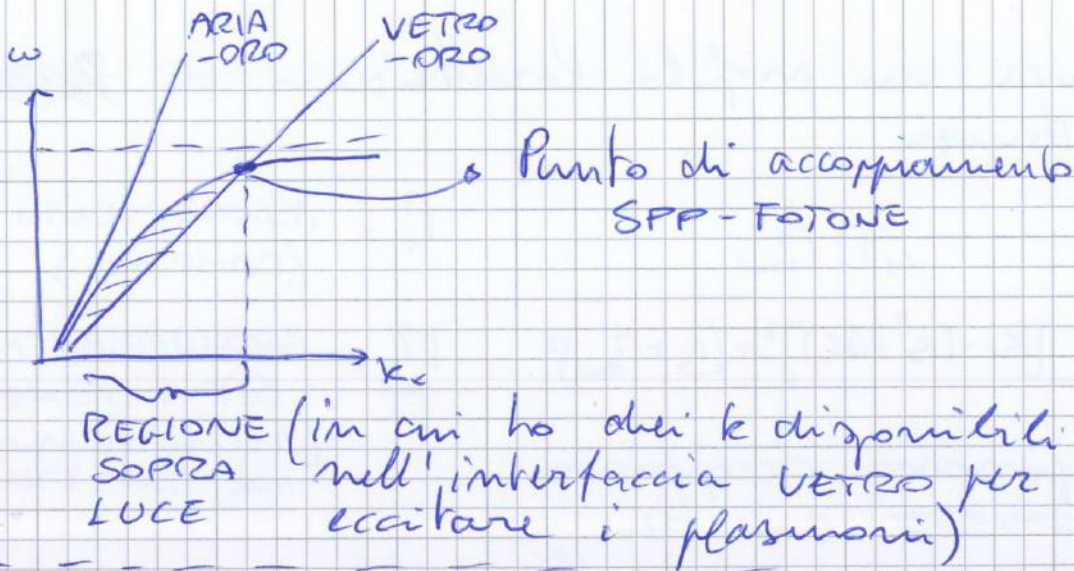 ω
ARIA
-ORO
VETRO
-ORO
Punto di accoppiamento
SPP - FOTONE
kx
REGIONE (in cui ho dei k disponibili
SOPRA nell'interfaccia VETRO per
LUCE eccitare i plasmoni)